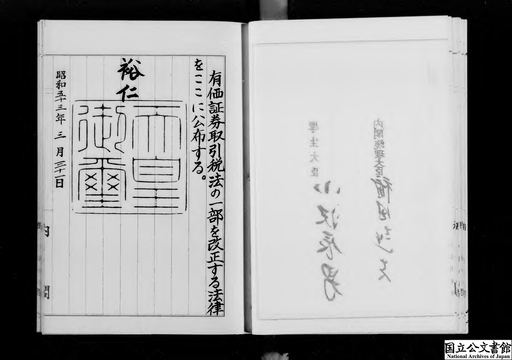 有価証券取引税法の一部を改正する法律
をここに公布する。
裕仁
天皇
御璽
昭和五十三年三月三十一日
内閣
内閣総理大臣 福田赳夫
国立公文書館
National Archives of Japan